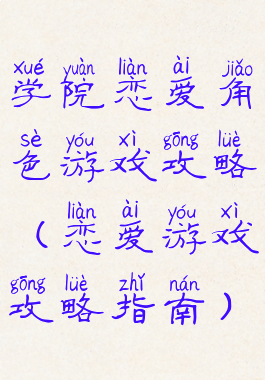 xué yuàn liàn ài jiǎo
学院恋爱角
sè yóu xì gōng lüè
色游戏攻略
liàn ài yóu xì
（恋爱游戏
gōng lüè zhǐ nán
攻略指南）